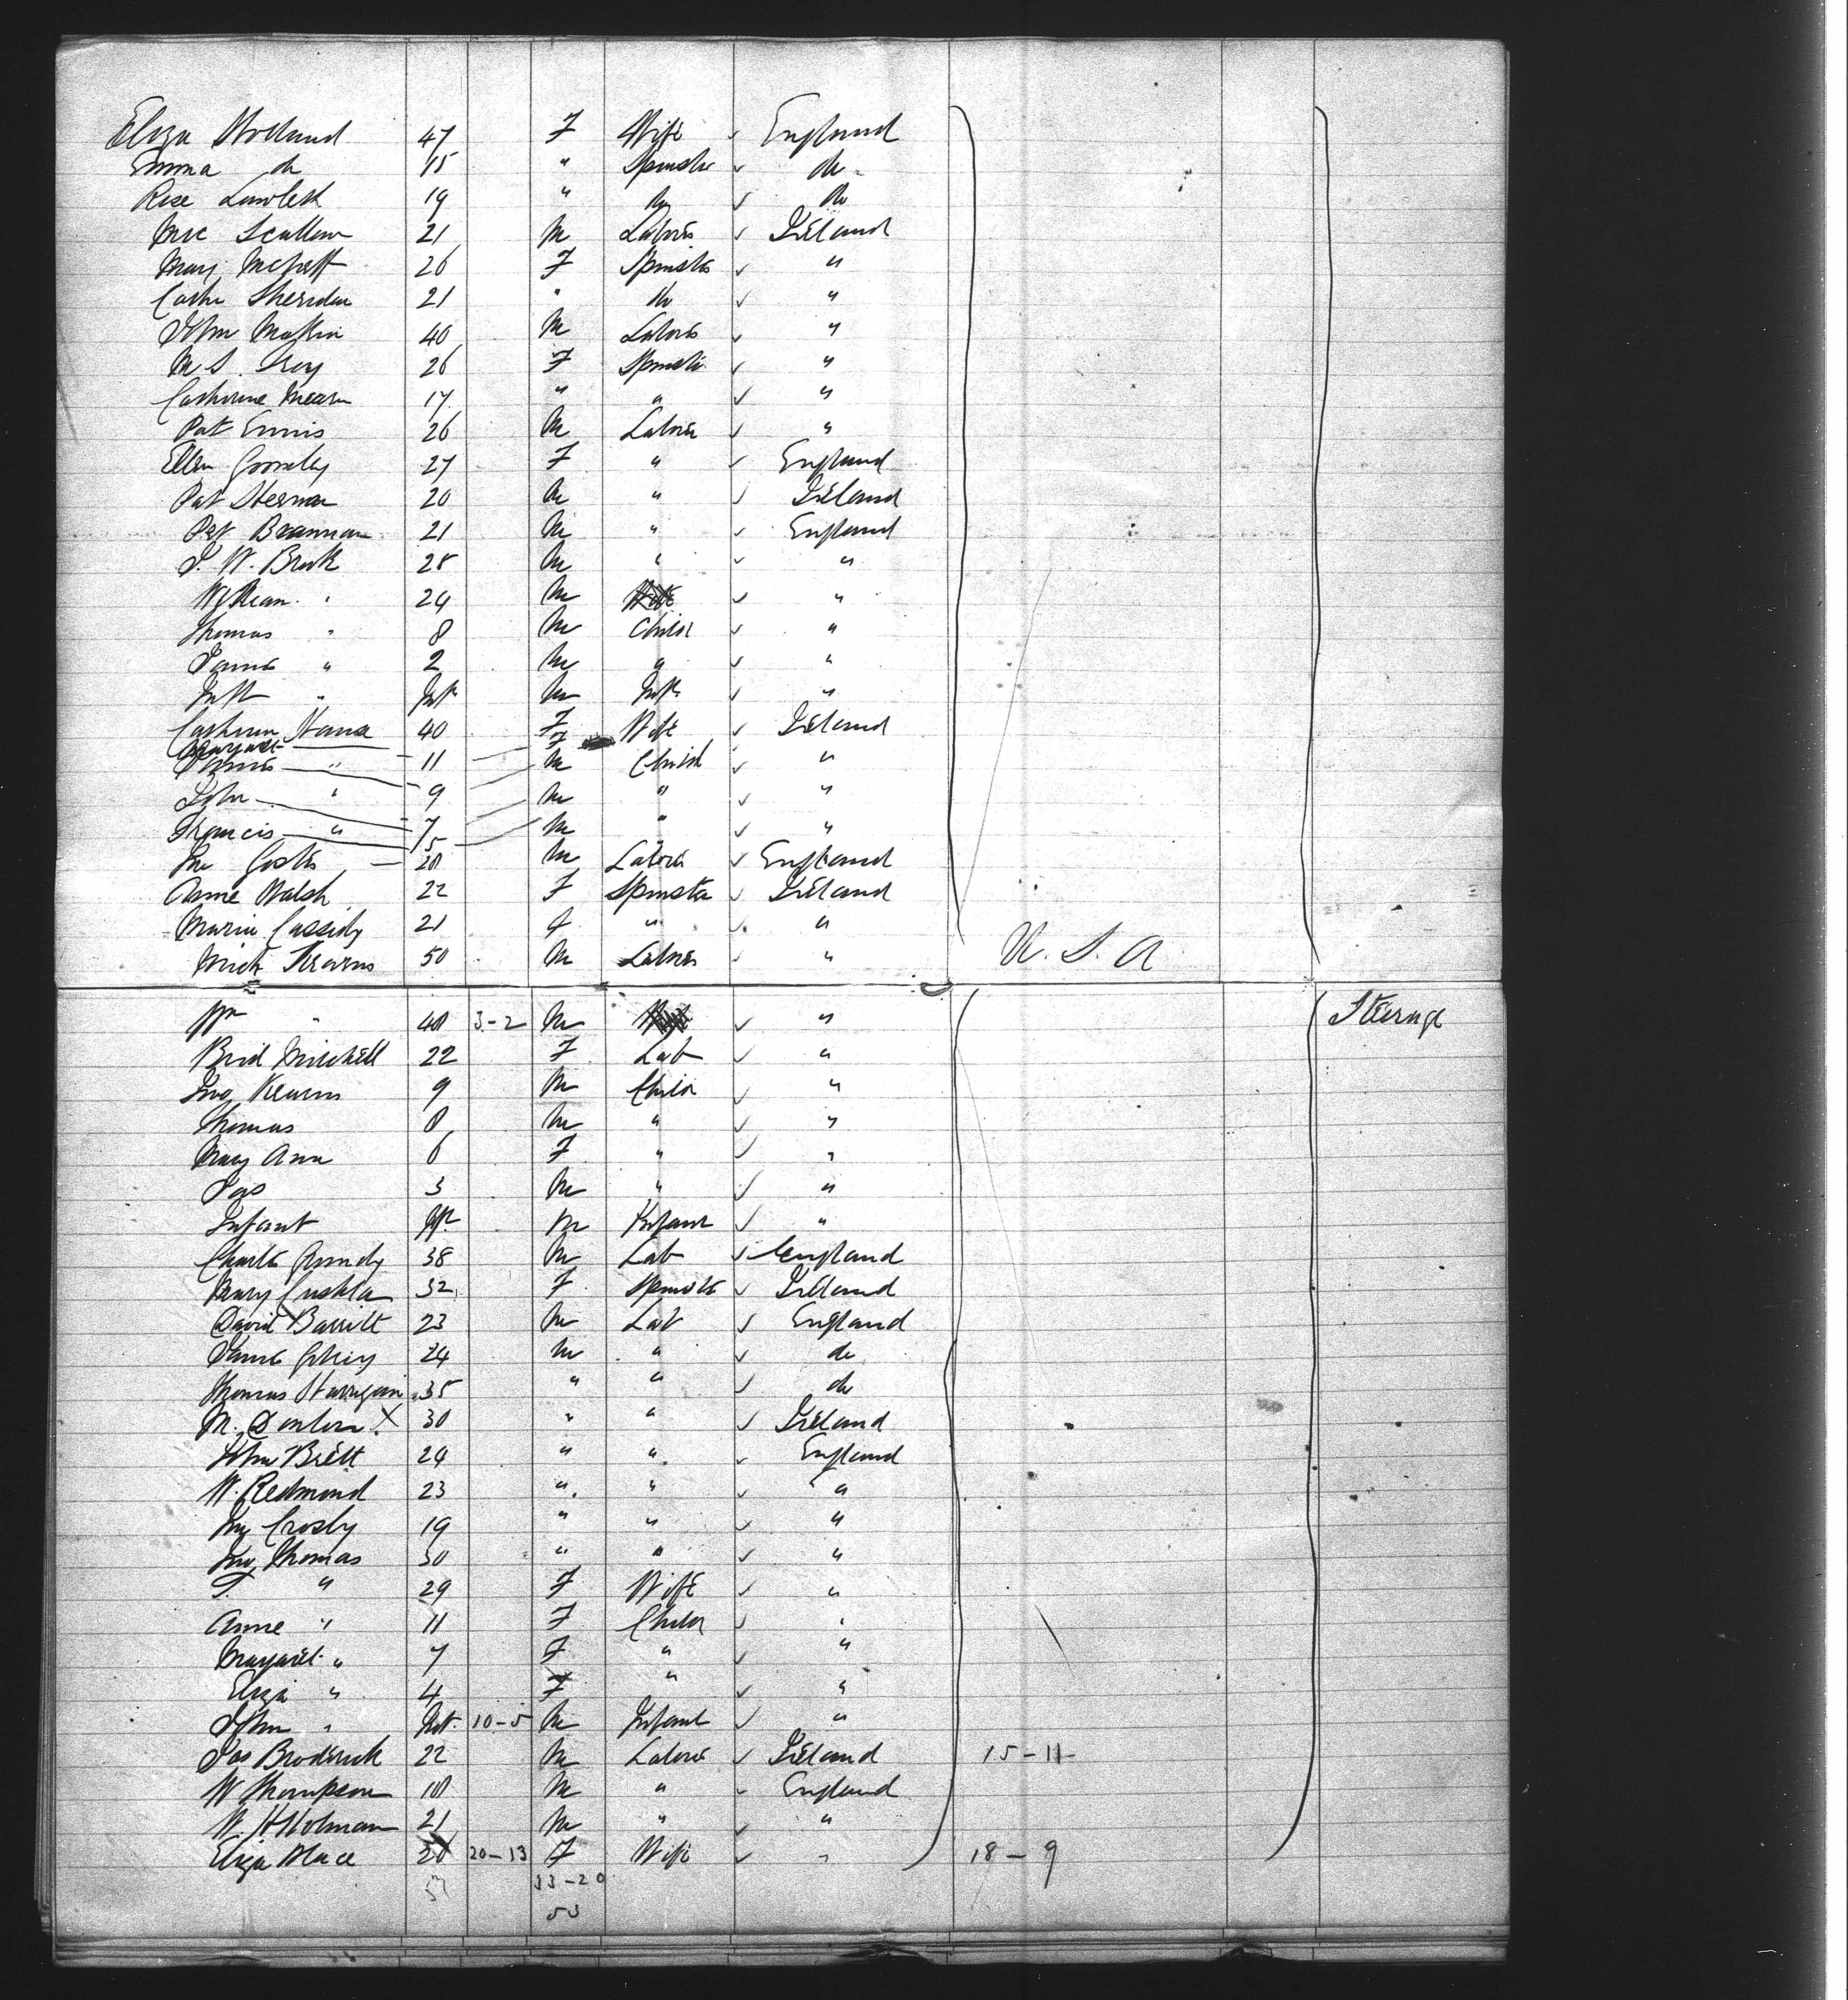 Eliza Holland 47 F Wife ✓ England
Emma do 15 " Spinster ✓ do
Rose Lawless 19 " do ✓ do
Mic Scallon 21 M Laborer ✓ Ireland
Mary 26 F Spinster ✓ "
Cathe Sheridan 21 " do ✓ "
John 40 M Laborer ✓ "
M S. 26 F Spinster ✓ "
Catherine 17 " " ✓ "
Pat Ennis 26 M Laborer ✓ "
Ellen Gormley 27 F " ✓ England
Pat 20 M " ✓ Ireland
Pat Brannan 21 M " ✓ England
J. W. Brook 28 M " ✓ "
" 24 M ✓ "
Thomas " 8 M Child ✓ "
James " 2 M " ✓ "
Inft " Inft M Inft ✓ "
40 F Wife ✓ Ireland
Margaret F
James " 11 M Child ✓ "
John " 9 M " ✓ "
Francis " 7 M " ✓ "
5
20 M Laborer ✓ England
Anne Walsh 22 F Spinster ✓ Ireland
Maria Cassidy 21 F " ✓ "
Mich Kearns 50 M Laborer ✓ " U. S. A
" 40 3-2 M ✓ " Steerage
Brid Mitchell 22 F Lab ✓ "
Jno Kearns 9 M Child ✓ "
Thomas 8 M " ✓ "
Mary Ann 6 F " ✓ "
Jas 3 M " ✓ "
Infant Inft M Infant ✓ "
Charles Grundy 38 M Lab ✓ England
Mary 32 F Spinster ✓ Ireland
David Barritt 23 M Lab ✓ England
James 24 M " ✓ do
Thomas Harrigan 35 " " ✓ do
M. X 30 " " ✓ Ireland
John Brett 24 " " ✓ England
W. Redmond 23 " " ✓ "
Jno Crosby 19 " " ✓ "
Jno Thomas 30 " " ✓ "
T. " 29 F Wife ✓ "
Anne " 11 F Child ✓ "
Margaret " 7 F " ✓ "
Eliza " 4 F " ✓ "
John " Inft. 10-5 M Infant ✓ "
Jas Broderick 22 M Laborer ✓ Ireland 15-11
W Thompson M " ✓ England
W. H Holman 21 M " ✓ "
Eliza 20-13 F Wife ✓ " 18-9
33-20
53